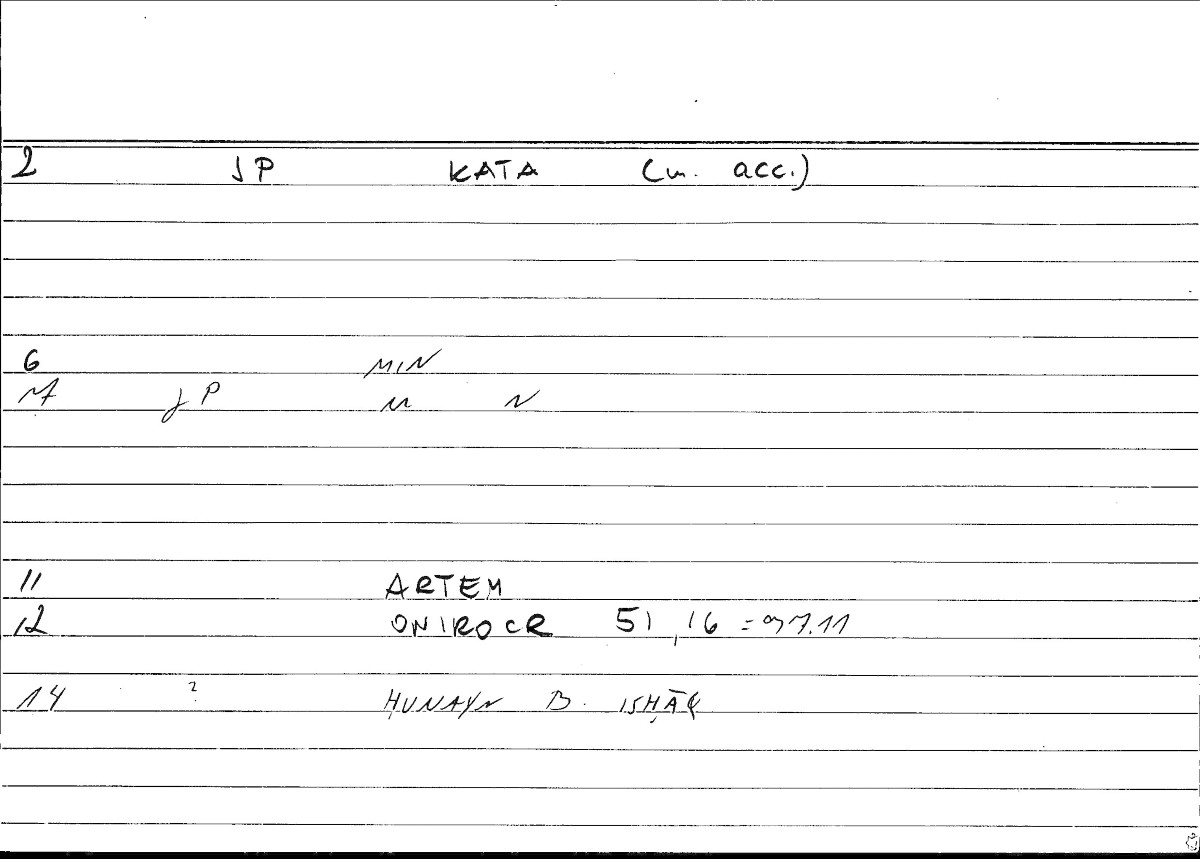 2 JP KATA (w. acc.)
6 MIN
JP
11 ARTEM
12 ONIROCR 51,16 = 97.11
14 ? ḤUNAYN B. ISḤĀQ